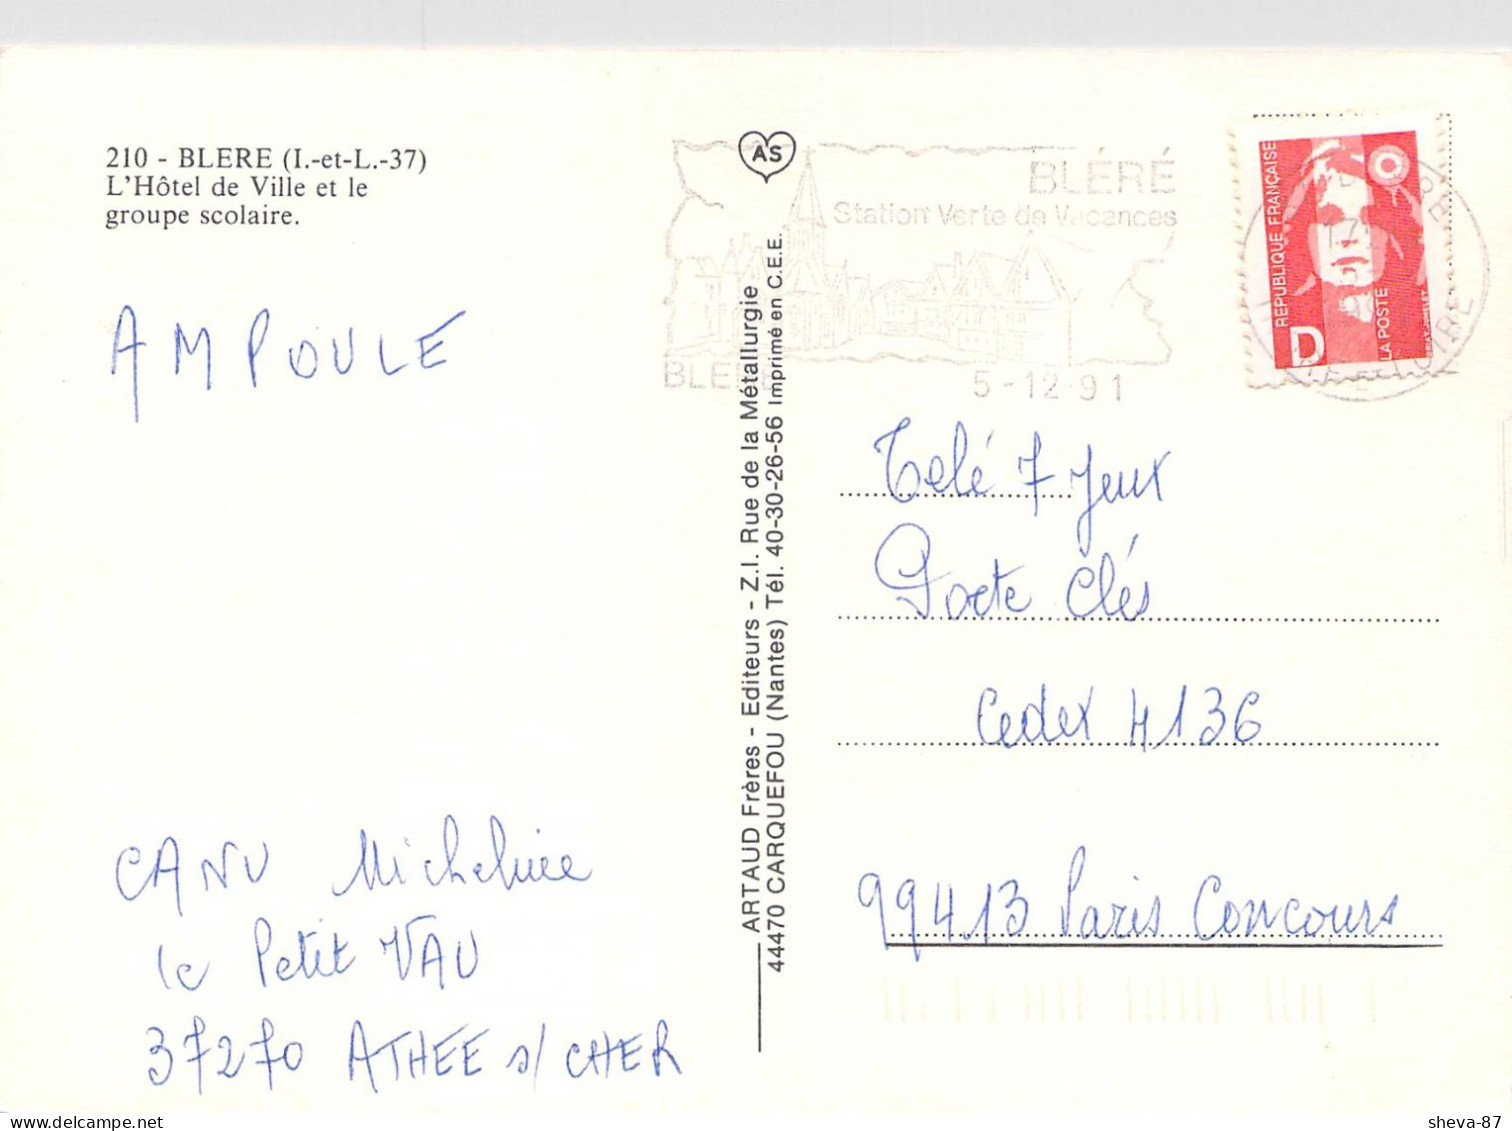 210 - BLERE (I.-et-L.-37)
L'Hôtel de Ville et le
groupe scolaire.
AMPOULE
CANU Micheline
le Petit VAU
37270 ATHEE s/ CHER
AS
ARTAUD Frères - Editeurs - Z.I. Rue de la Métallurgie
44470 CARQUEFOU (Nantes) Tél. 40-30-26-56 Imprimé en C.E.E.
BLÉRÉ
Station Verte de Vacances
BLERE
5-12-91
REPUBLIQUE FRANÇAISE
LA POSTE
D
Telé 7 Jeux
Porte Clés
Cedex 4136
99413 Paris Concours
sheva-87